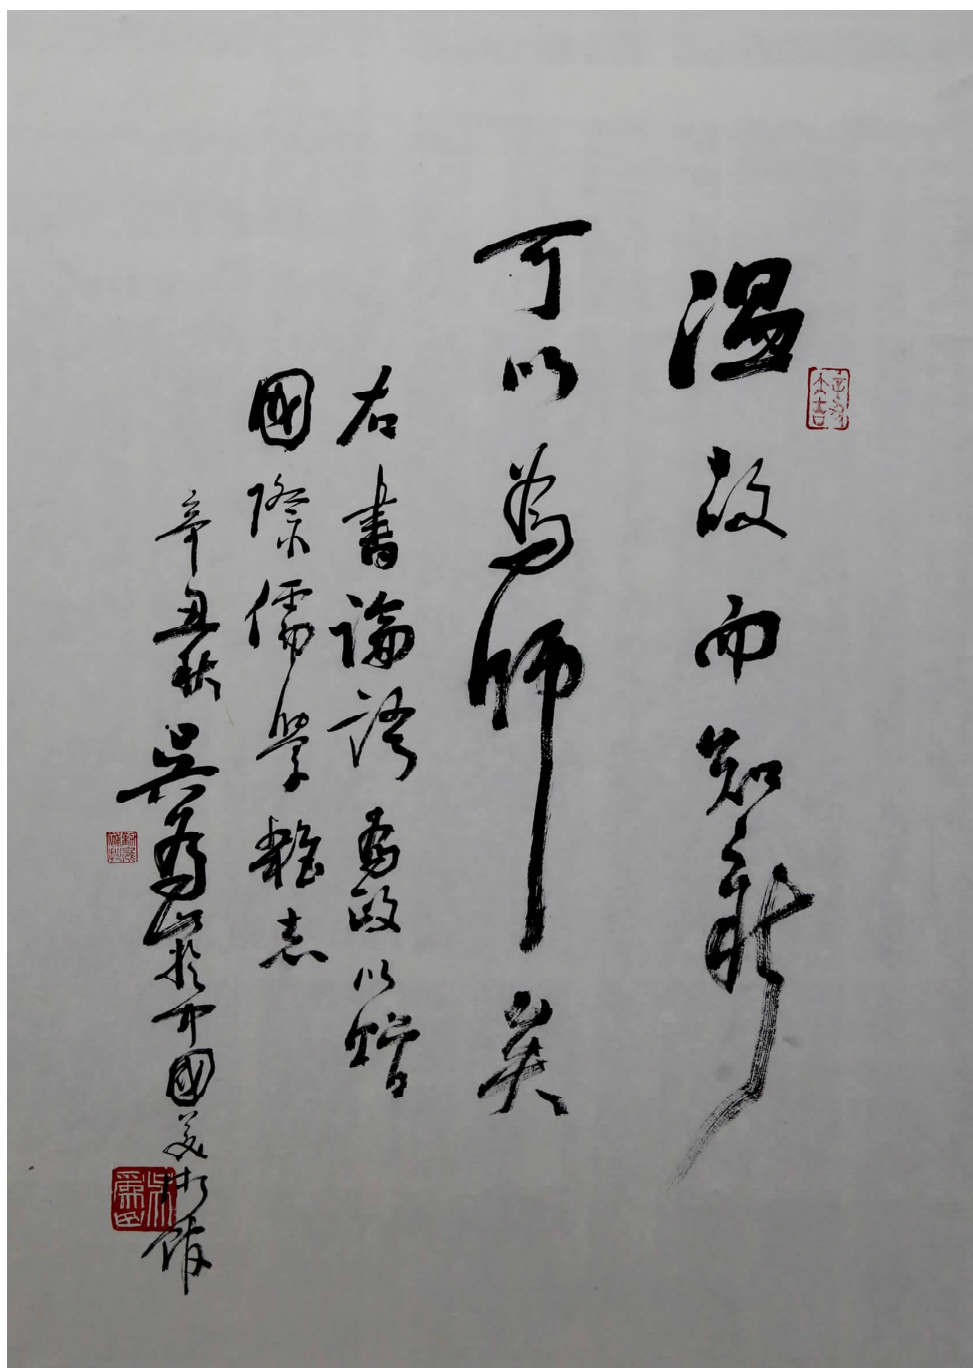 溫故而知新
可以為師矣
右書論語為政以贈
國際儒學聯誌
辛丑秋吳為山於中國美術館